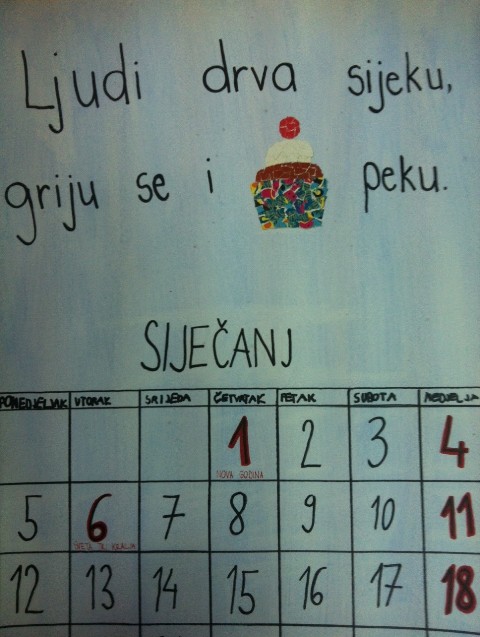 Ljudi drva sijeku,
griju se i peku.
SIJEČANJ
PONEDJELJAK UTORAK SRIJEDA ČETVRTAK PETAK SUBOTA NEDJELJA
1 2 3 4
NOVA GODINA
5 6 7 8 9 10 11
SVETA TRI KRALJA
12 13 14 15 16 17 18